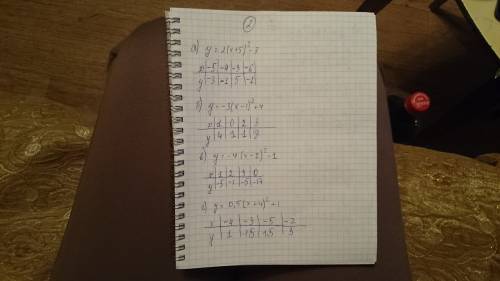 2
а) y = 2(x+5)²-3
x | -5 | -4 | -3 | -6
y | -3 | -1 | 5 | -1
б) y = -3(x-1)²+4
x | 1 | 0 | 2 | 3
y | 4 | 1 | 1
в) y = -4(x-2)²-1
x | 1 | 2 | 3 | 0
y | -5 | -1 | -5 | -17
г) y = 0,5(x+4)²+1
x | -4 | -3 | -5 | -2
y | 1 | 1,5 | 1,5 | 3